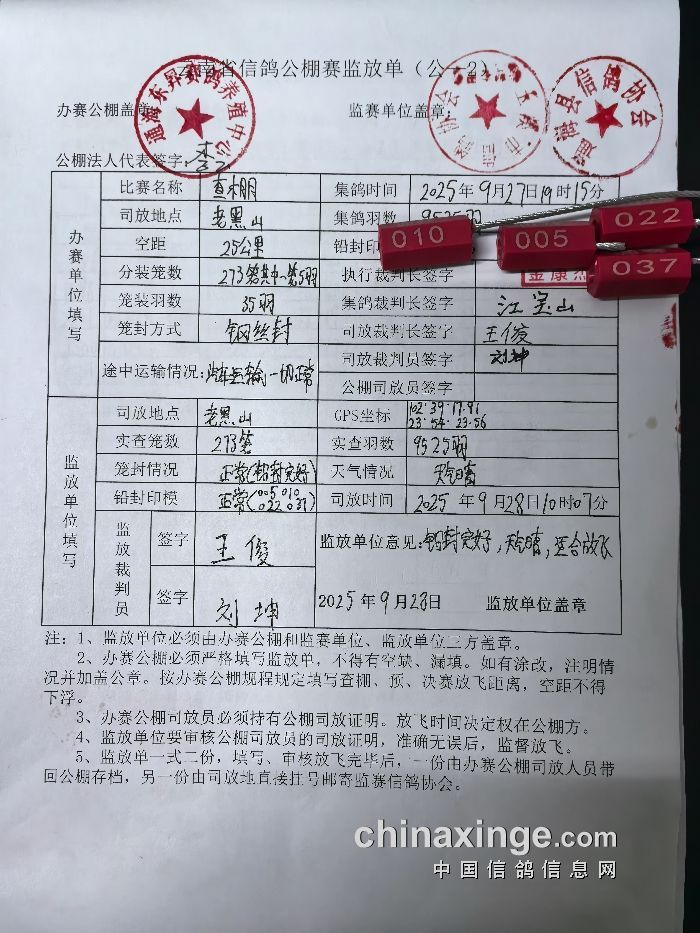 云南省信鸽公棚赛监放单（公—2）
通海东昇赛鸽养殖中心
信鸽协会
通海县信鸽协会
办赛公棚盖章
监赛单位盖章:
公棚法人代表签字:
办赛单位填写
比赛名称 查棚 集鸽时间 2025年9月27日19时15分
司放地点 老黑山 集鸽羽数 9525羽
空距 25公里 铅封印
010 005 022 037
分装笼数 273笼其中一笼5羽 执行裁判长签字 金康杰
笼装羽数 35羽 集鸽裁判长签字 江宝山
笼封方式 钢丝封 司放裁判长签字 王俊
途中运输情况: 运输一切正常 司放裁判员签字 刘坤
公棚司放员签字
监放单位填写
司放地点 老黑山 GPS坐标 102·39·17.91
23·54·23.56
实查笼数 273笼 实查羽数 9525羽
笼封情况 正常(铅封完好) 天气情况 天气晴
铅封印模 正常(005 010 022 037) 司放时间 2025年9月28日10时07分
监放裁判员 签字 王俊 监放单位意见: 铅封完好,天气晴,适合放飞
签字 刘坤 2025年9月28日 监放单位盖章
注：1、监放单位必须由办赛公棚和监赛单位、监放单位三方盖章。
2、办赛公棚必须严格填写监放单，不得有空缺、漏填。如有涂改，注明情
况并加盖公章。按办赛公棚规程规定填写查棚、预、决赛放飞距离，空距不得
下浮。
3、办赛公棚司放员必须持有公棚司放证明。放飞时间决定权在公棚方。
4、监放单位要审核公棚司放员的司放证明，准确无误后，监督放飞。
5、监放单一式二份，填写、审核放飞完毕后，一份由办赛公棚司放人员带
回公棚存档，另一份由司放地直接挂号邮寄监赛信鸽协会。
chinaxinge.com
中国信鸽信息网